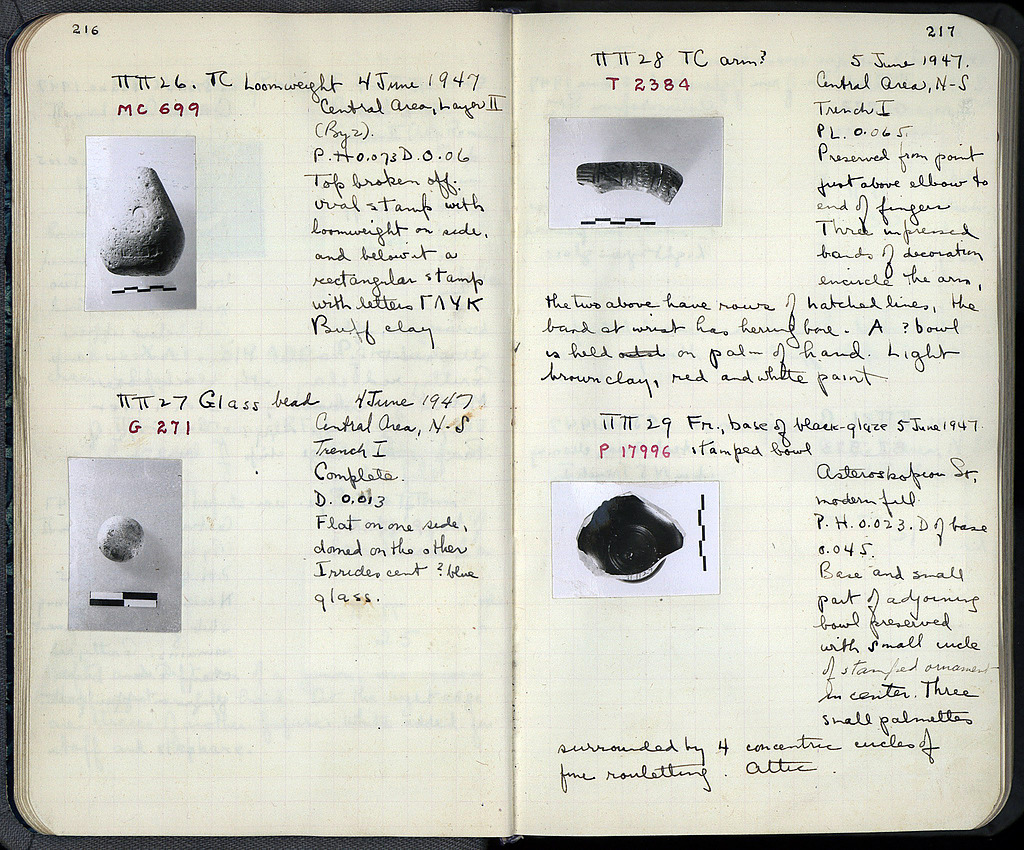 216
ΠΠ 26. TC Loomweight 4 June 1947
MC 699
Central Area, Layer II
(Byz).
P.H 0.073 D. 0.06
Top broken off.
Oval stamp with
loomweight on side,
and below it a
rectangular stamp
with letters ΓΛΥΚ
Buff clay
ΠΠ 27 Glass bead 4 June 1947
G 271
Central Area, N-S
Trench I
Complete.
D. 0.013
Flat on one side,
domed on the other
Irridescent ? blue
glass.
217
ΠΠ 28 TC arm? 5 June 1947.
T 2384
Central Area, N-S
Trench I
PL. 0.065
Preserved from point
just above elbow to
end of fingers
Three impressed
bands of decoration
encircle the arm,
the two above have rows of hatched lines, the
band at wrist has herring bone. A ? bowl
is held on palm of hand. Light
brown clay, red and white paint
ΠΠ 29 Fr., base of black-glaze 5 June 1947.
P 17996 stamped bowl
Asteroskopeion St,
modern fill
P.H. 0.023. D of base
0.045.
Base and small
part of adjoining
bowl preserved
with small circle
of stamped ornament
in center. Three
small palmettes
surrounded by 4 concentric circles of
fine rouletting. Attic.